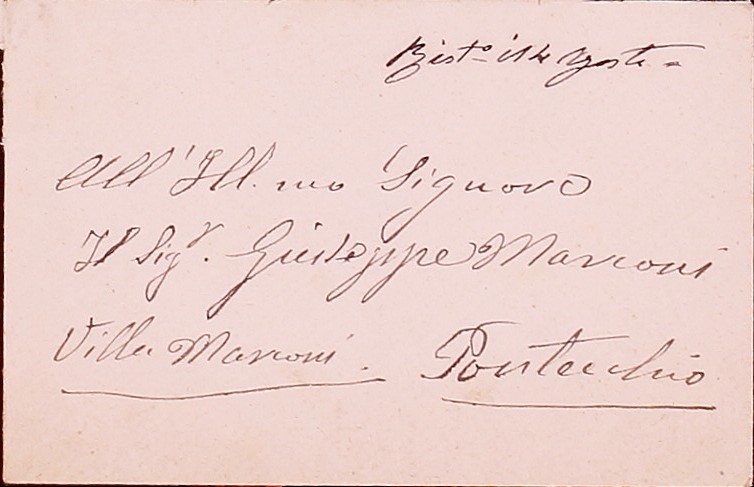 il 4 Agosto =
All'Ill.mo Signore
Il Sigr. Giuseppe Marconi
Villa Marconi. Pontecchio